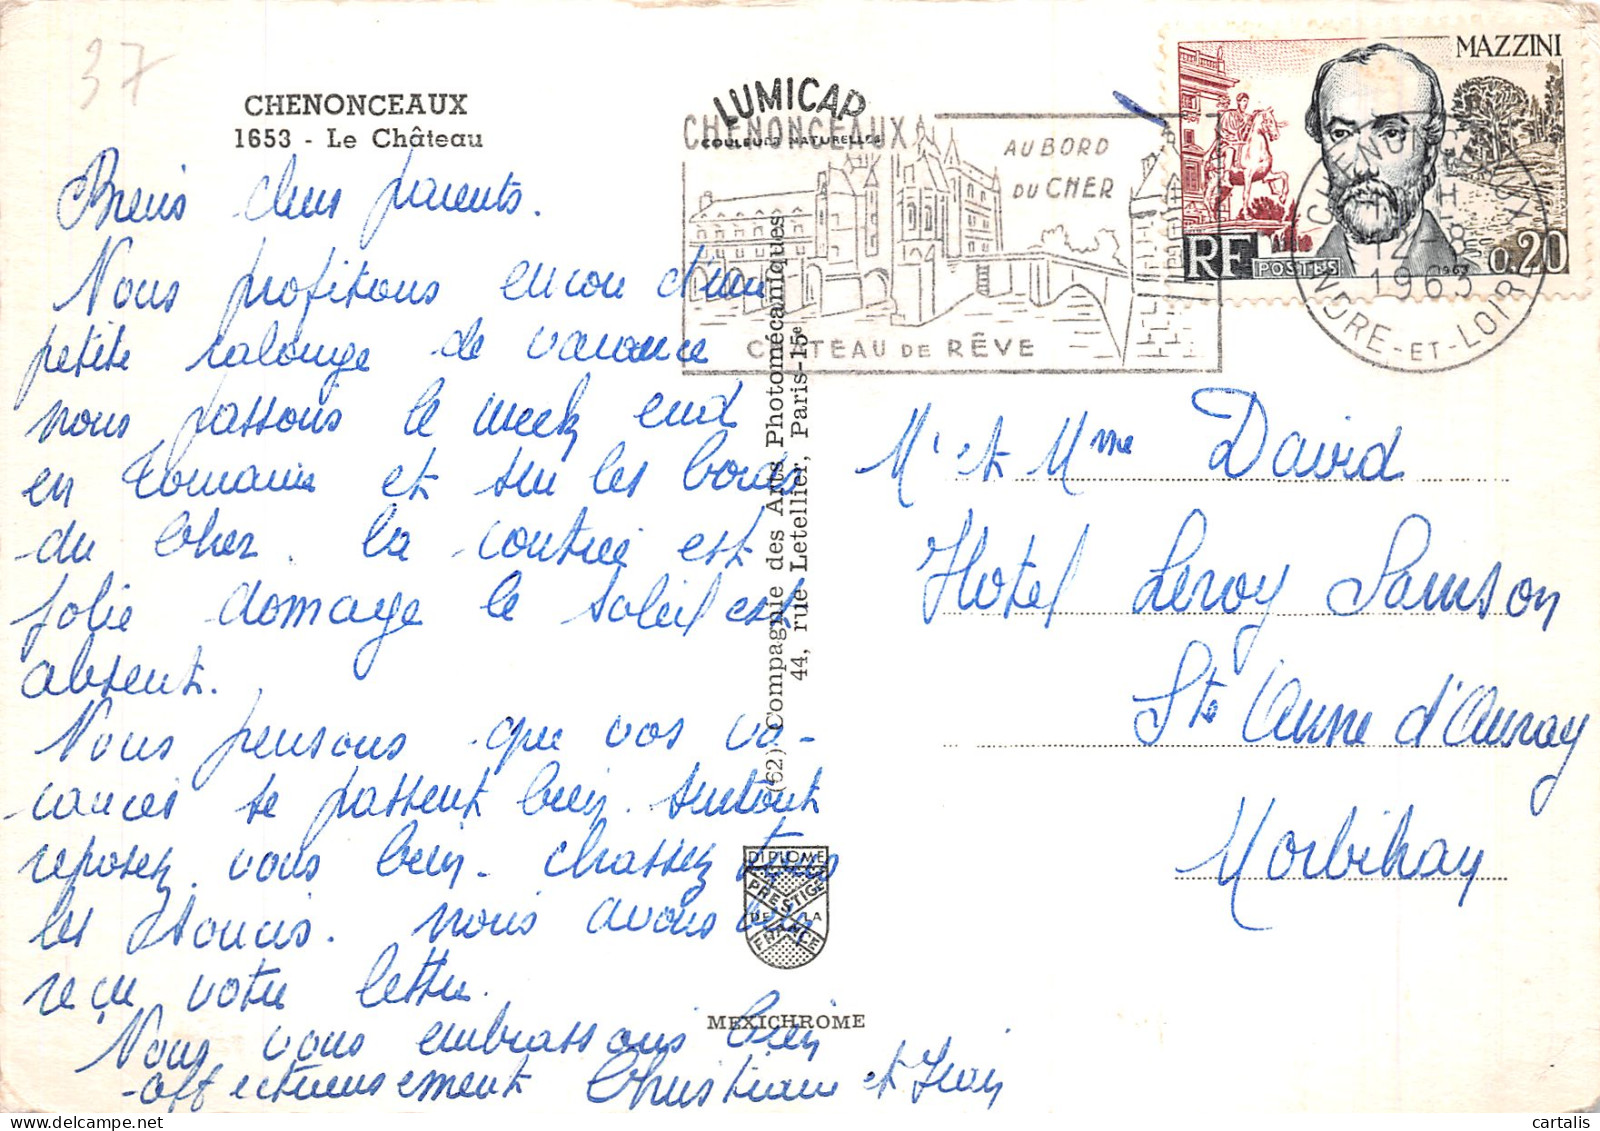 37
CHENONCEAUX
1653 - Le Château
Biens chers parents.
Nous profitons encore d'une
petite ralonge de vacance
nous passons le week end
en Touraine et sur les bords
du Cher. La contrée est
jolie domage le soleil est
absent.
Nous pensons que vos va-
cances se passent bien. surtout
reposez vous bien. chassez tous
les soucis. nous avons bien
reçu votre lettre.
Nous vous embrassons bien
affectueusement Christiane et
LUMICAP
COULEURS NATURELLES
CHENONCEAUX
AU BORD
DU CHER
CHATEAU DE RÊVE
(62) Compagnie des Arts Photomécaniques
44, rue Letellier, Paris-15e
DIPLOME
PRESTIGE
DE LA
FRANCE
MEXICHROME
MAZZINI
RF
POSTES
0,20
1963
CHENONCEAUX
18H
12
1963
INDRE-ET-LOIRE
Mr et Mme David
Hotel Leroy Samson
Ste Anne d'Auray
Morbihan
cartalis www.delcampe.net